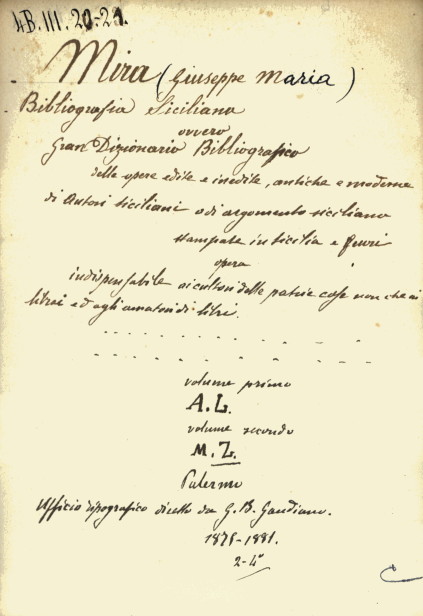 4B. III. 20-21.
Mira (Giuseppe Maria)
Bibliografia Siciliana
ovvero
Gran Dizionario Bibliografico
delle opere edite e inedite, antiche e moderne
di Autori siciliani o di argomento siciliano
stampate in Sicilia e fuori
opera
indispensabile ai cultori delle patrie cose non che ai
librai ed agli amatori di libri.
volume primo
A. L.
volume secondo
M. Z.
Palermo
Ufficio tipografico diretto da G. B. Gaudiano.
1875-1881.
2-4°